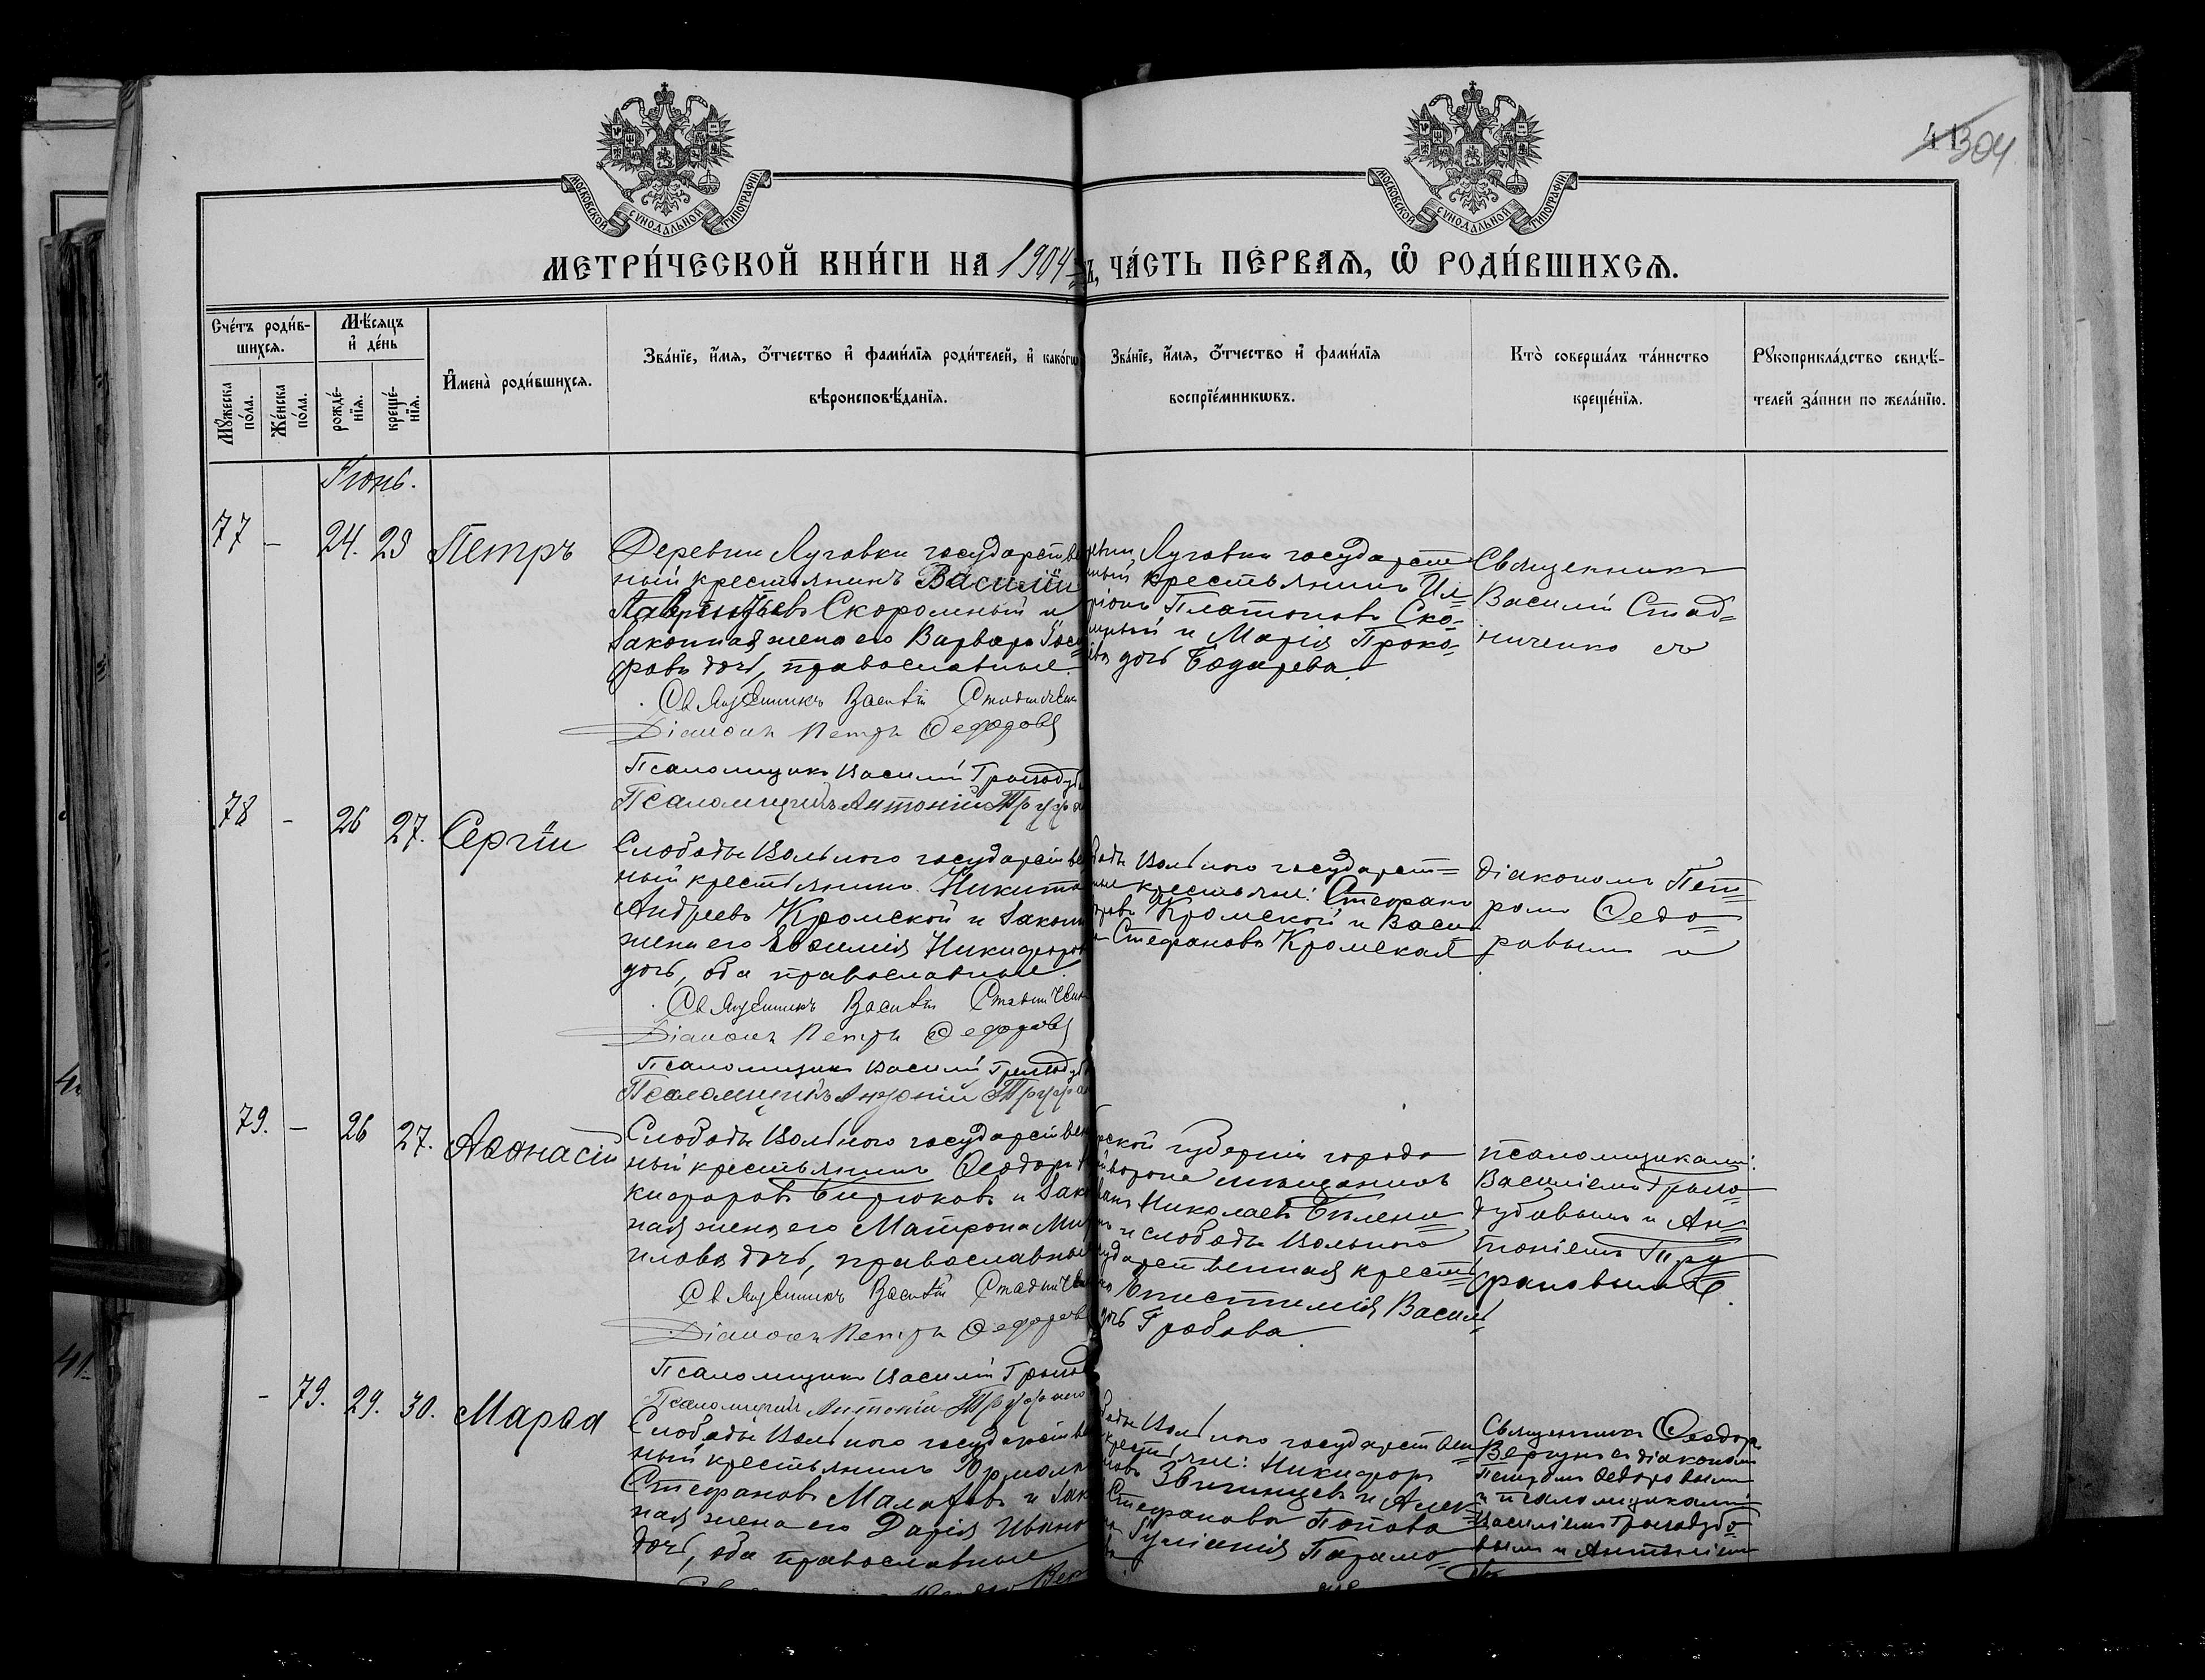 41
304
МОСКОВСКОЙ СѴНОДАЛЬНОЙ ТИПОГРАФІИ
МОСКОВСКОЙ СѴНОДАЛЬНОЙ ТИПОГРАФІИ
МЕТРИ́ЧЕСКОЙ КНИ́ГИ НА 1904 ЧА́СТЬ ПЕ́РВАЯ, Ѽ РОДИ́ВШИХСЯ.
Сче́тъ роди́в-
шихся.
Мѣ́сяцъ
и҆ де́нь
Мꙋ́жеска по́ла.
Же́нска по́ла.
рожде́-нїя.
креще́-нїя.
И҆мена̀ роди́вшихся.
Зва́нїе, и҆́мя, ѻ҆́тчество и҆ фами́лїя роди́телей, и҆ како́гѡ
вѣроисповѣ́данїя.
Зва́нїе, и҆́мя, ѻ҆́тчество и҆ фами́лїя
воспрїе́мникѡвъ.
Кто̀ соверша́лъ та́инство
креще́нїя.
Рꙋкоприкла́дство свидѣ́-
телей за́писи по жела́нїю.
Іюнь.
77 - 24. 29 Петръ
Деревни Луговки государствен
ный крестьянинъ Василій
Лаврентьевъ Скоромный и
законная жена его Варвара
дочь, православные.
Священникъ Василій Стадниченко
Діаконъ Петръ Ѳедоровъ
Псаломщикъ Василій Громодуб
Псаломщикъ Антоній Труфа
Луговки государст=
ный крестьянинъ Ил=
ріонъ Платоновъ Ско=
и Марія Проко=
дочь Бодарева.
Священникъ
Василій Стад=
ниченко съ
78 - 26 27. Сергій
Слободы Вольного государствен
ный крестьянинъ Никита
Андреевъ Кромской и закон
жена его Евѳимія Никифоров
дочь, оба православные.
Священникъ Василій Стадниченко
Діаконъ Петръ Ѳедоровъ
Псаломщикъ Василій Громодуб
Псаломщикъ Антоній Труфа
Вольного государст=
крестьяне: Стефанъ
Кромской и Васи=
Стефанова Кромская
діакономъ Пет=
ромъ Ѳедо=
ровымъ и
79. - 26 27. Аѳанасій
Слободы Вольного государствен
ный крестьянинъ Ѳеодоръ Ни
кифоровъ Бирюковъ и зако
ная жена его Матрона Ми
илова дочь, православные
Священникъ Василій Стадниченко
Діаконъ Петръ Ѳедоровъ
Псаломщикъ Василій Громод
Псаломщикъ Антоній Труфано
ской губерніи города
мѣщанинъ
Николаевъ
и слободы Вольного
ударственная крест=
Епистимія Васил=
дочь Гробова
псаломщиками:
Василіемъ Громо=
дубовымъ и Ан=
тоніемъ Тру=
фановымъ.
- 79. 29. 30. Марѳа
Слободы Вольного государствен
ный крестьянинъ Ермола
Стефановъ Малаховъ и зак
ная жена его Дарія Ивано
дочь, оба православные
Вольного государствен=
крестьяне: Никифоръ
Звягинцевъ и Алек=
Стефанова Попова
Священникъ Ѳеодоръ
Вергунъ съ діакономъ
Петромъ Ѳедоровымъ
и псаломщиками
Василіемъ Громодубо=
вымъ и Антоніемъ